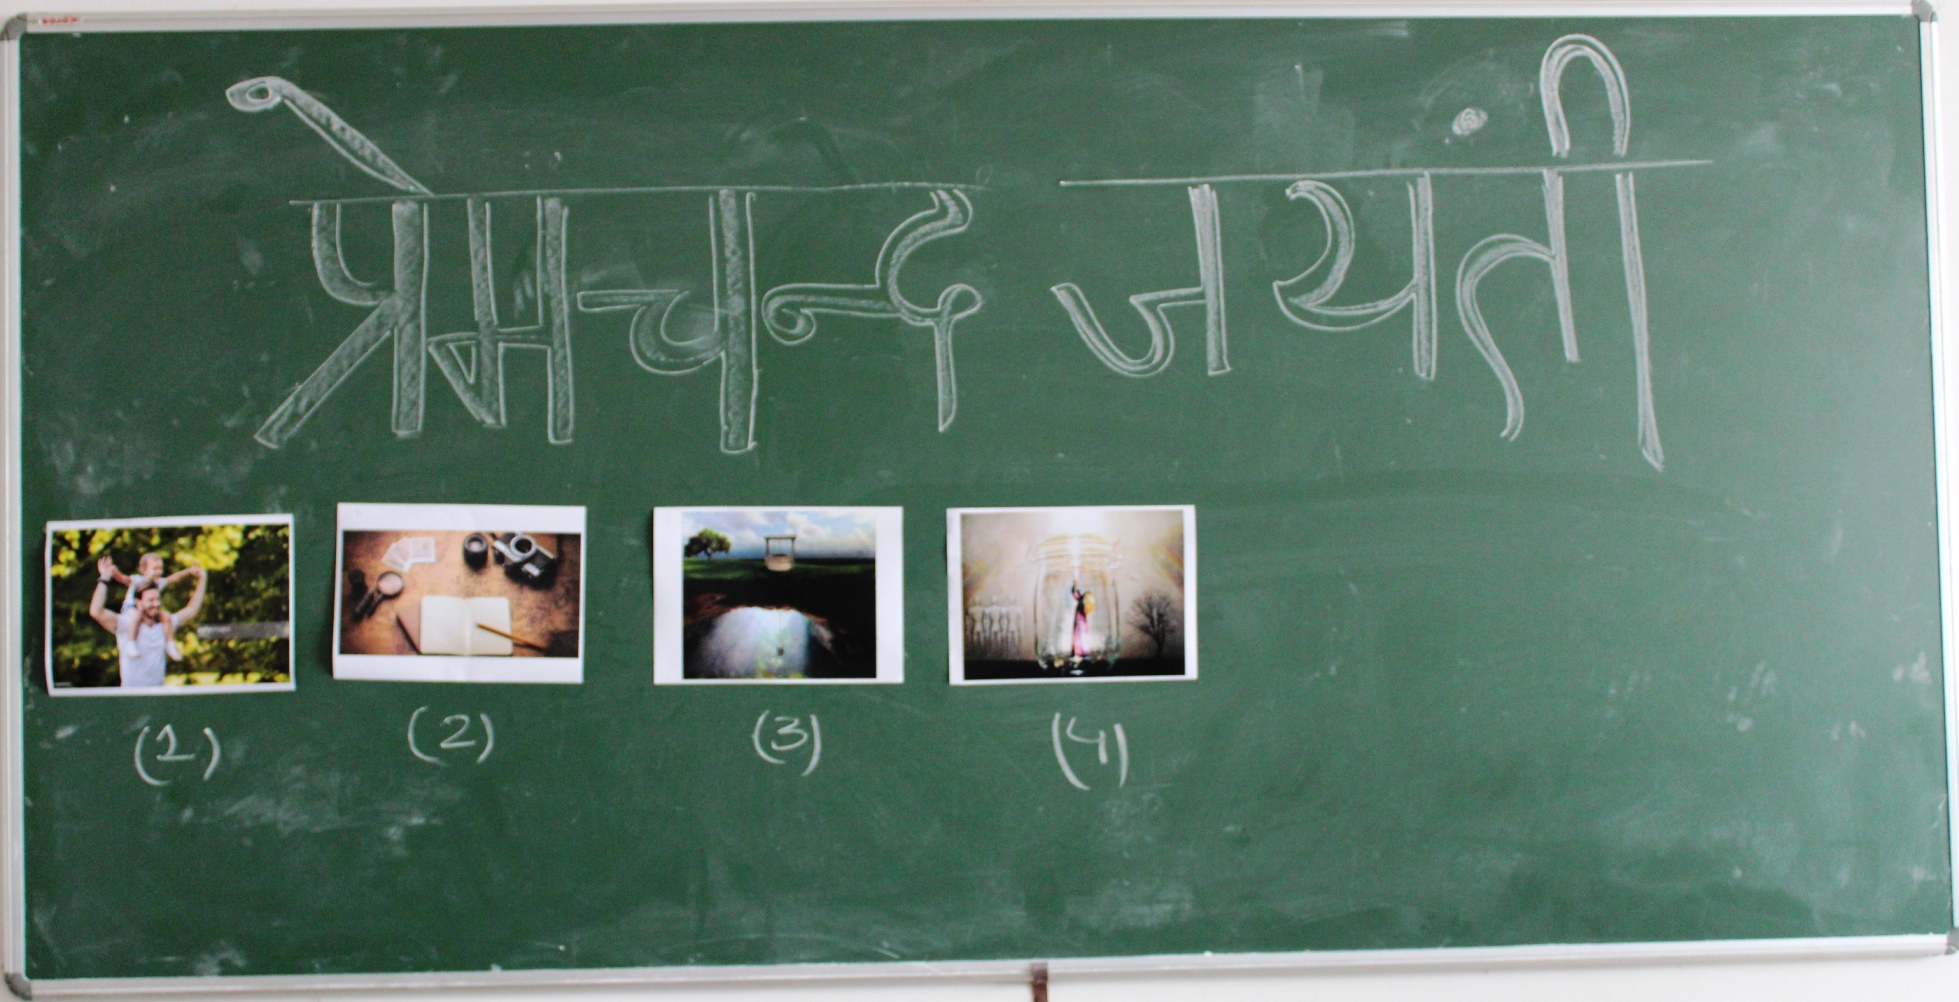 प्रेमचन्द जयंती
(1) (2) (3) (4)